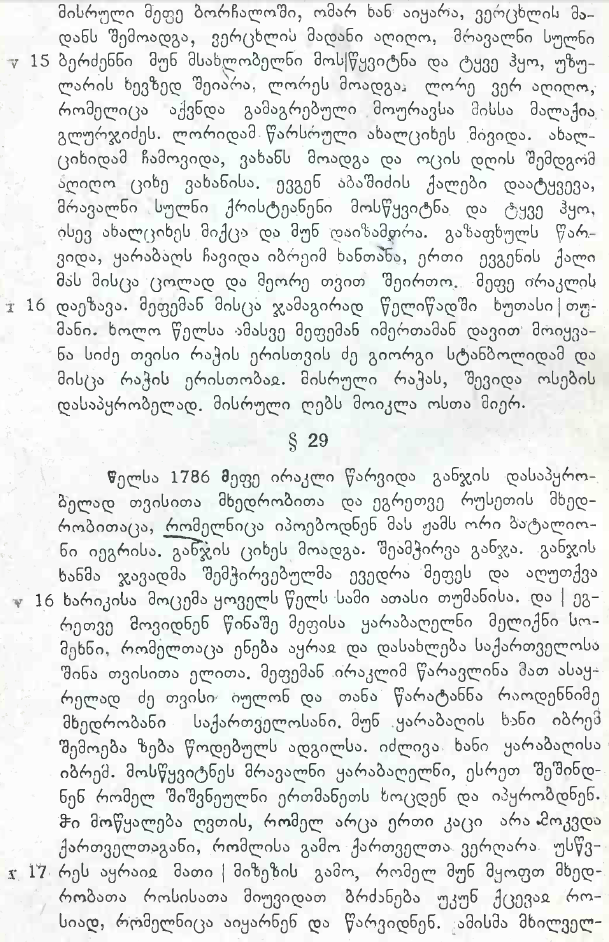 მისრული მეფე ბორჩალოში, ომარ ხან აიყარა, ვერცხლის მა-
დანს შემოადგა, ვერცხლის მადანი აღიღო, მრავალნი სულნი
v 15 ბერძენნი მუნ მსახლობელნი მოს|წყვიტნა და ტყვე ჰყო, უზუ-
ლარის ხევზედ შეიარა, ლორეს მოადგა. ლორე ვერ აღიღო,
რომელიცა აქვნდა გამაგრებული მოურავსა მისსა მალაქია
გლურჯიძეს. ლორიდამ წარსრული ახალციხეს მივიდა. ახალ-
ციხიდამ ჩამოვიდა, ვახანს მოადგა და ოცის დღის შემდგომ
აღიღო ციხე ვახანისა. ევგენ აბაშიძის ქალები დაატყვევა,
მრავალნი სულნი ქრისტეანენი მოსწყვიტნა და ტყვე ჰყო,
ისევ ახალციხეს მიქცა და მუნ დაიზამთრა. გაზაფხულს წარ-
ვიდა, ყარაბაღს ჩავიდა იბრეიმ ხანთანა, ერთი ევგენის ქალი
მას მისცა ცოლად და მეორე თვით შეირთო. მეფე ირაკლის
r 16 დაეზავა. მეფემან მისცა ჯამაგირად წელიწადში ხუთასი | თუ-
მანი. ხოლო წელსა ამასვე მეფემან იმერთამან დავით მოიყვა-
ნა სიძე თვისი რაჭის ერისთვის ძე გიორგი სტანბოლიდამ და
მისცა რაჭის ერისთობაჲ. მისრული რაჭას, შევიდა ოსების
დასაპყრობელად. მისრული ღებს მოიკლა ოსთა მიერ.
§ 29
წელსა 1786 მეფე ირაკლი წარვიდა განჯის დასაპყრო-
ბელად თვისითა მხედრობითა და ეგრეთვე რუსეთის მხედ-
რობითაცა, რომელნიცა იპოებოდნენ მას ჟამს ორი ბატალიო-
ნი იეგრისა. განჯის ციხეს მოადგა. შეამჭირვა განჯა. განჯის
ხანმა ჯავადმა შემჭირვებულმა ევედრა მეფეს და აღუთქვა
v 16 ხარიკისა მოცემა ყოველს წელს სამი ათასი თუმანისა. და | ეგ-
რეთვე მოვიდნენ წინაშე მეფისა ყარაბაღელნი მელიქნი სო-
მეხნი, რომელთაცა ენება აყრაჲ და დასახლება საქართველოსა
შინა თვისითა ელითა. მეფემან ირაკლიმ წარავლინა მათ ასაყ-
რელად ძე თვისი იულონ და თანა წარატანნა რაოდენნიმე
მხედრობანი საქართველოსანი. მუნ ყარაბაღის ხანი იბრემ
შემოება ზება წოდებულს ადგილსა. იძლივა ხანი ყარაბაღისა
იბრემ. მოსწყვიტნეს მრავალნი ყარაბაღელნი, ესრეთ შეშინდ-
ნენ რომელ შიშვნეულნი ერთმანეთს ხოცდენ და იპყრობდნენ.
ჵი მოწყალება ღვთის, რომელ არცა ერთი კაცი არა მოკვდა
ქართველთაგანი, რომლისა გამო ქართველთა ვერღარა უსწვ-
r 17 რეს აყრაიჲ მათი | მიზეზის გამო, რომელ მუნ მყოფთ მხედ-
რობათა როსისათა მიუვიდათ ბრძანება უკუნ ქცევაჲ რო-
სიად, რომელნიცა აიყარნენ და წარვიდნენ. ამისმა მხილველ-